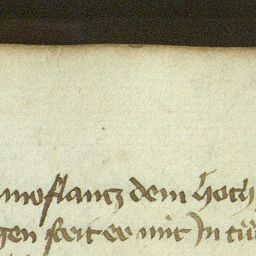 moflantz dem hoch
gen streit er mit In tü